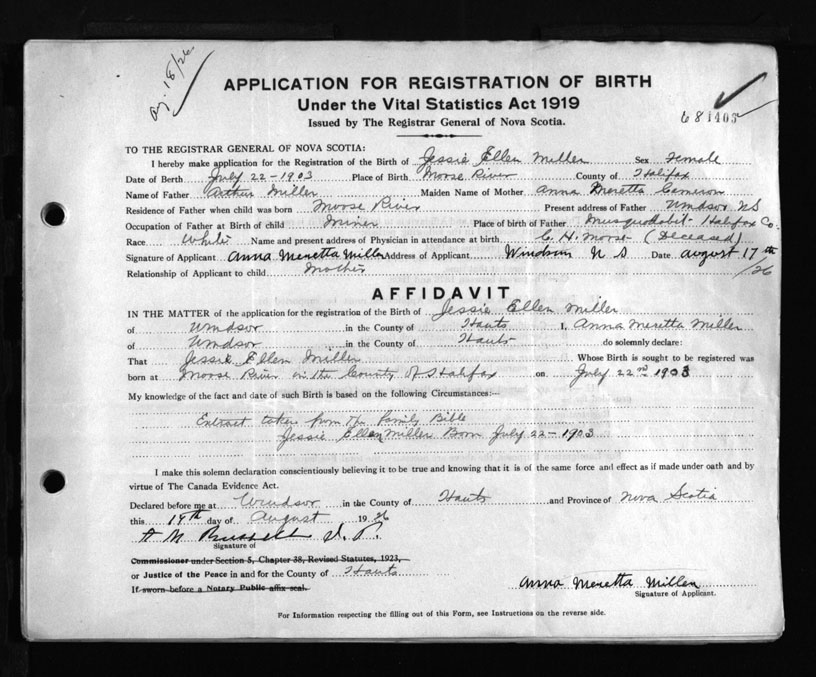 Aug 18/26
APPLICATION FOR REGISTRATION OF BIRTH
Under the Vital Statistics Act 1919
Issued by The Registrar General of Nova Scotia.
68 1405
TO THE REGISTRAR GENERAL OF NOVA SCOTIA:
I hereby make application for the Registration of the Birth of Jessie Ellen Miller Sex Female
Date of Birth July 22-1903 Place of Birth Moose River County of Halifax
Name of Father Arthur Miller Maiden Name of Mother Anna Meretta Cameron
Residence of Father when child was born Moose River Present address of Father Windsor NS
Occupation of Father at Birth of child Miner Place of birth of Father Musquodobit-Halifax Co.
Race White Name and present address of Physician in attendance at birth C. H. Morse (Deceased)
Signature of Applicant Anna Meretta Miller Address of Applicant Windsor N S Date August 17th
/26
Relationship of Applicant to child Mother
AFFIDAVIT
IN THE MATTER of the application for the registration of the Birth of Jessie Ellen Miller
of Windsor in the County of Hants I, Anna Meretta Miller
of Windsor in the County of Hants do solemnly declare:
That Jessie Ellen Miller Whose Birth is sought to be registered was
born at Moose River in the County of Halifax on July 22nd 1903
My knowledge of the fact and date of such Birth is based on the following Circumstances:—
Extract taken from the Family Bible
Jessie Ellen Miller Born July 22-1903
I make this solemn declaration conscientiously believing it to be true and knowing that it is of the same force and effect as if made under oath and by
virtue of The Canada Evidence Act.
Declared before me at Windsor in the County of Hants and Province of Nova Scotia
this 18th day of August 1926
J. P.
Signature of
Commissioner under Section 5, Chapter 38, Revised Statutes, 1923,
or Justice of the Peace in and for the County of Hants
If sworn before a Notary Public affix seal.
Anna Meretta Miller
Signature of Applicant.
For Information respecting the filling out of this Form, see Instructions on the reverse side.